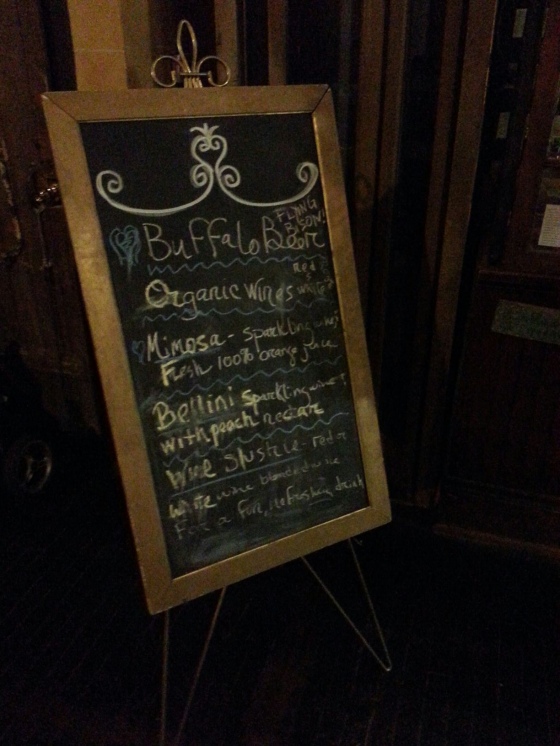 Buffalo Beer FLYING BISON!
Organic Wines red & white
Mimosa - sparkling wine,
Fresh 100% orange juice
Bellini sparkling wine
with peach nectar
Wine Slushie red or
white wine blended w ice
For a fun, refreshing drink